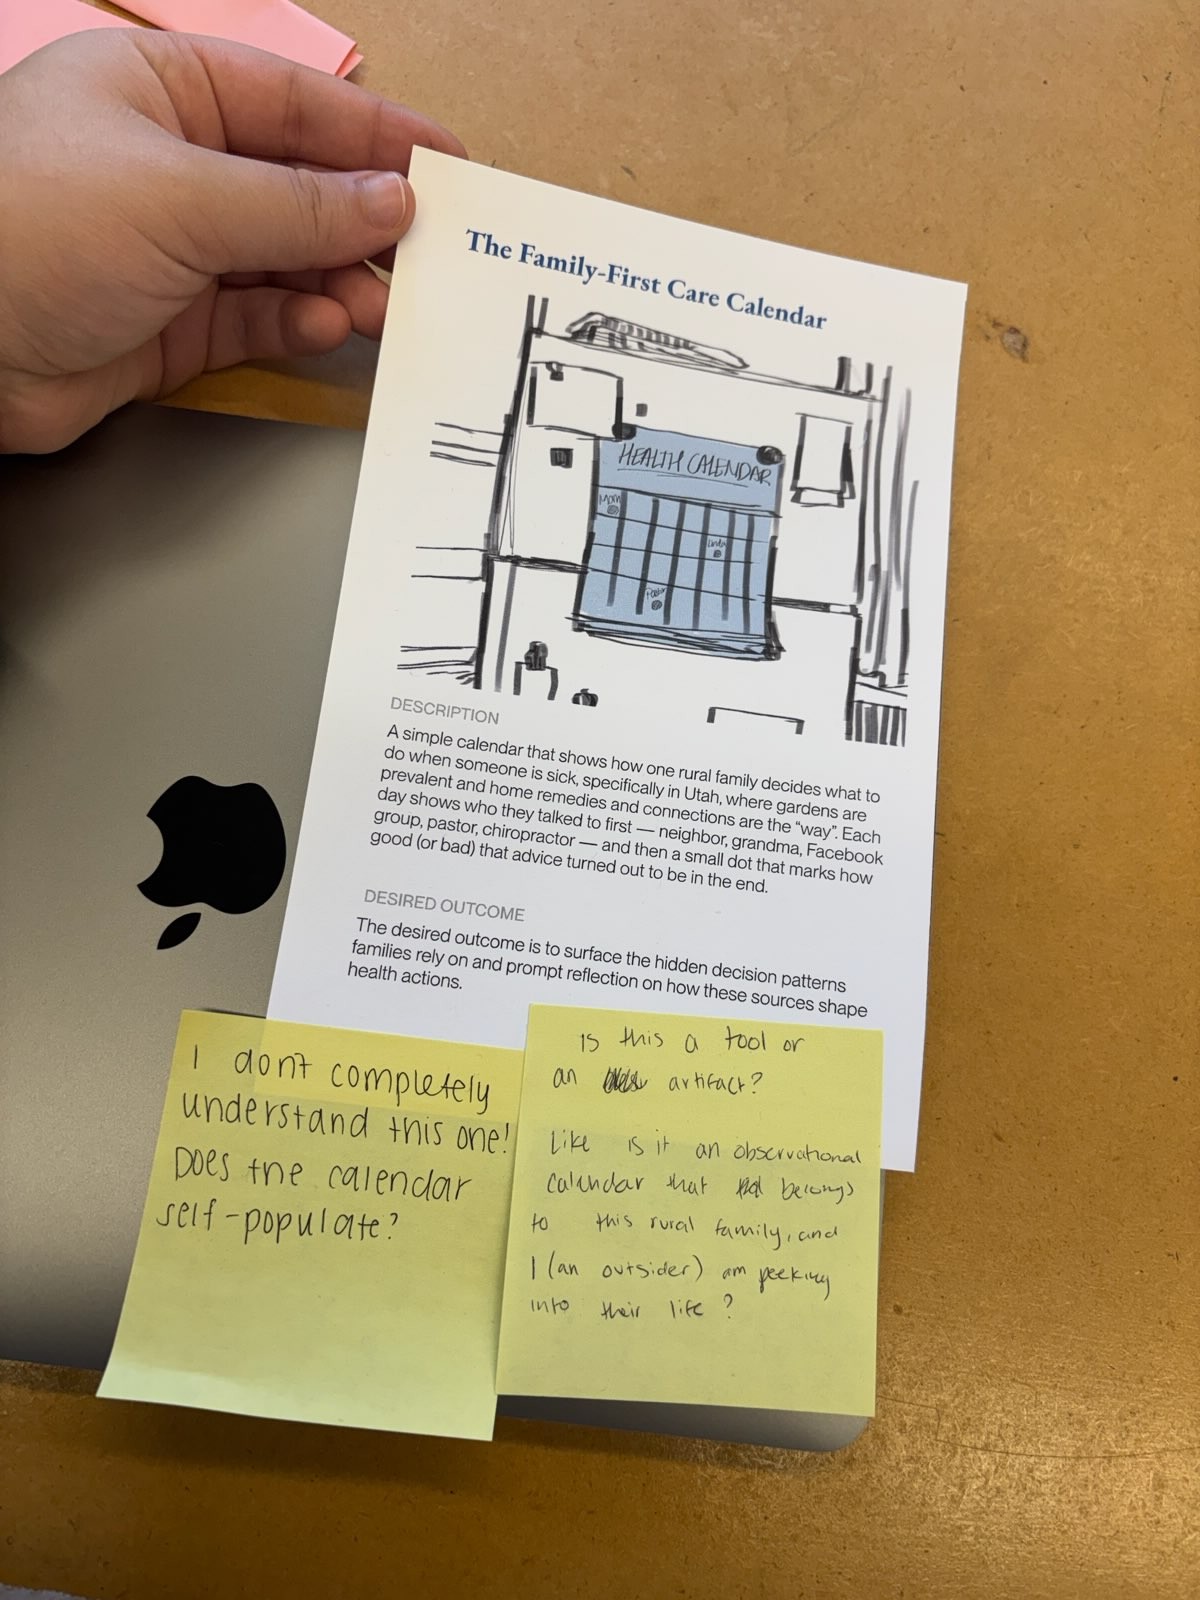 The Family-First Care Calendar
HEALTH CALENDAR
Mom
Pastor
DESCRIPTION
A simple calendar that shows how one rural family decides what to
do when someone is sick, specifically in Utah, where gardens are
prevalent and home remedies and connections are the “way”. Each
day shows who they talked to first — neighbor, grandma, Facebook
group, pastor, chiropractor — and then a small dot that marks how
good (or bad) that advice turned out to be in the end.
DESIRED OUTCOME
The desired outcome is to surface the hidden decision patterns
families rely on and prompt reflection on how these sources shape
health actions.
I don't completely
understand this one!
Does the calendar
self-populate?
Is this a tool or
an artifact?
Like is it an observational
calendar that belongs
to this rural family, and
I (an outsider) am peeking
into their life?